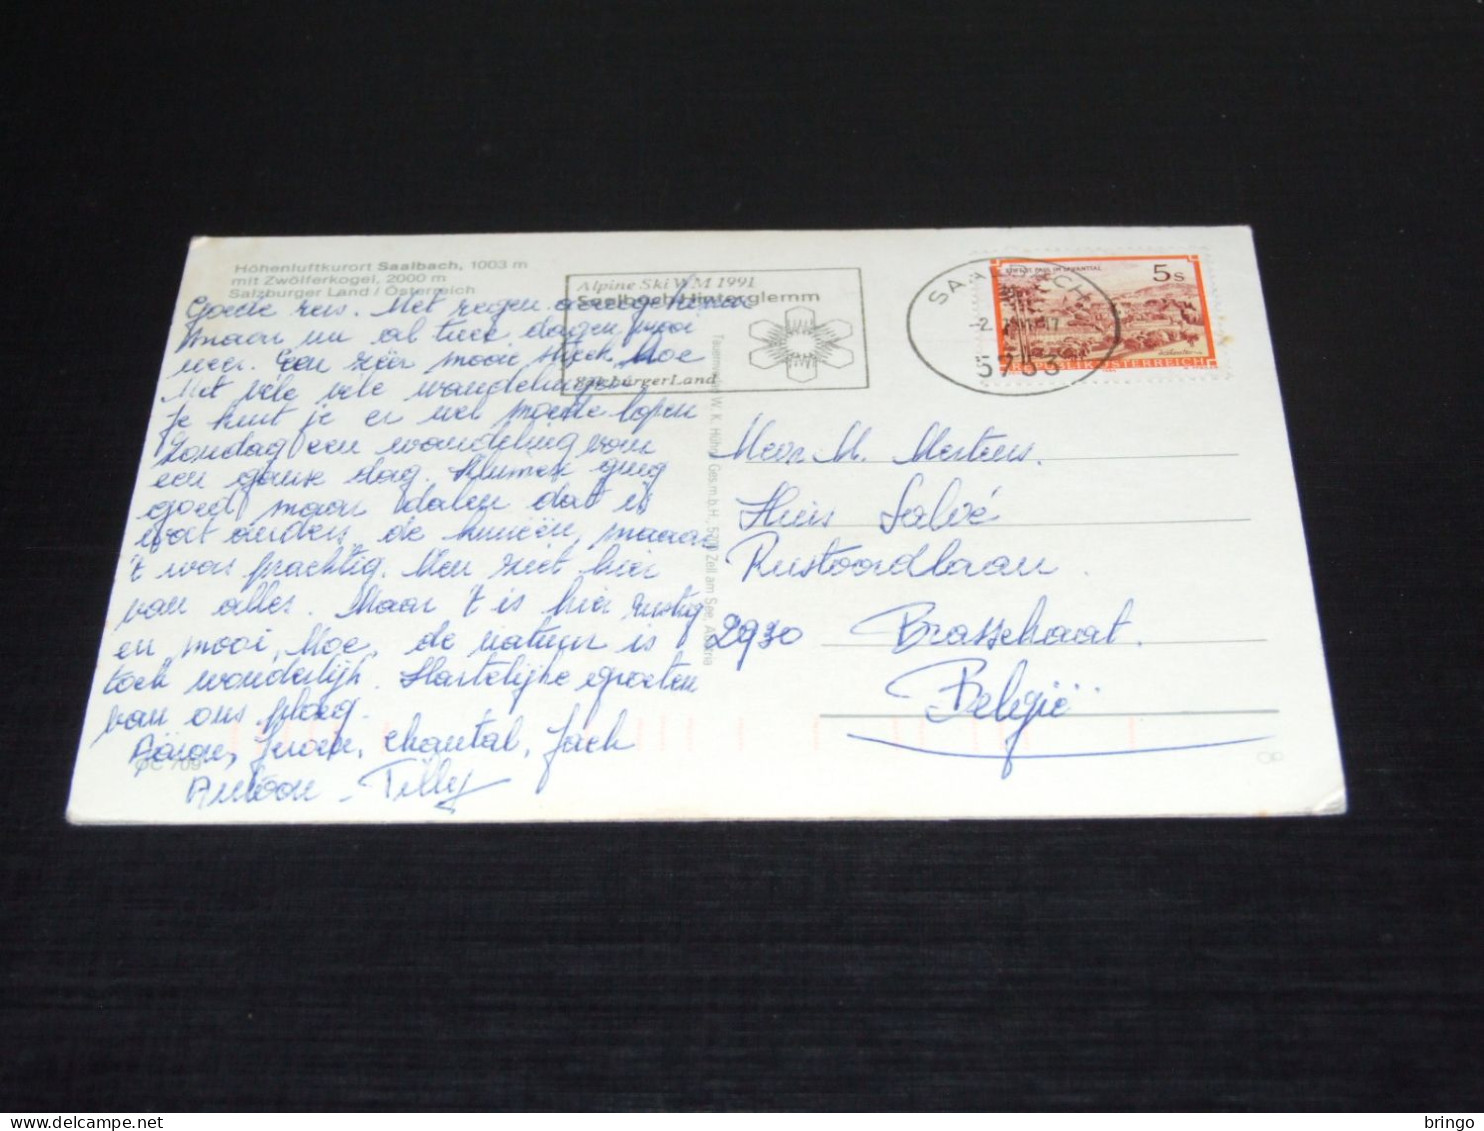 Höhenluftkurort Saalbach, 1003 m
mit Zwölferkogel, 2000 m
Salzburger Land / Österreich
Goede reis. Met regen
maar nu al twee dagen mooi
weer. Een zéér mooi
Met vele vele wandelingen
Je kunt je er wel moede lopen
Zondag een wandeling van
een ganse dag. Klimmen ging
goed maar dalen dat is
wat anders, de knieën, maar
't was prachtig. Men ziet hier
van alles. Maar 't is hier rustig
en mooi, Moe, de natuur is
toch wonderlijk. Hartelijke groeten
van ons ploeg.
Jeroen, Chantal, Jack
Antoon - Tilly
ØC 709
Alpine Ski WM 1991
Saalbach-Hinterglemm
SalzburgerLand
SAALBACH
5753
5 s
REPUBLIK ÖSTERREICH
W. K. Hühne Ges.m.b.H., 5700 Zell am See, Austria
Heer M. Mertens.
Huis Salvé
Rustoordlaan.
2930 Brasschaat.
België
bringo